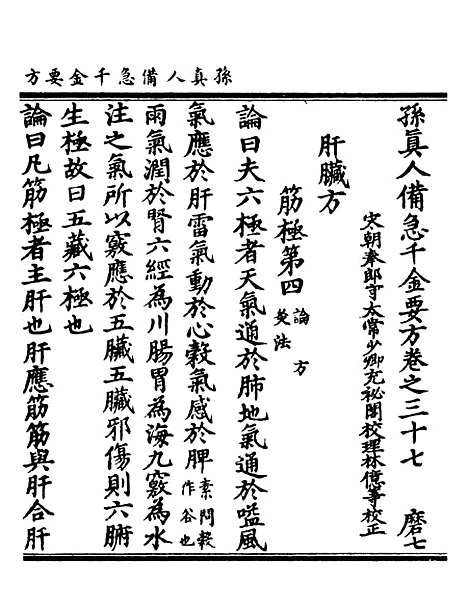 孫真人備急千金要方
孫真人備急千金要方卷之三十七 磨七
宋朝奉郎守太常少卿充祕閣校理林億等校正
肝臟方
筋極第四 論 方 灸法
論曰夫六極者天氣通於肺地氣通於嗌風
氣應於肝雷氣動於心穀氣感於脾 素問穀作谷也
雨氣潤於腎六經為川腸胃為海九竅為水
注之氣所以竅應於五臟五臟邪傷則六腑
生極故曰五藏六極也
論曰凡筋極者主肝也肝應筋筋與肝合肝